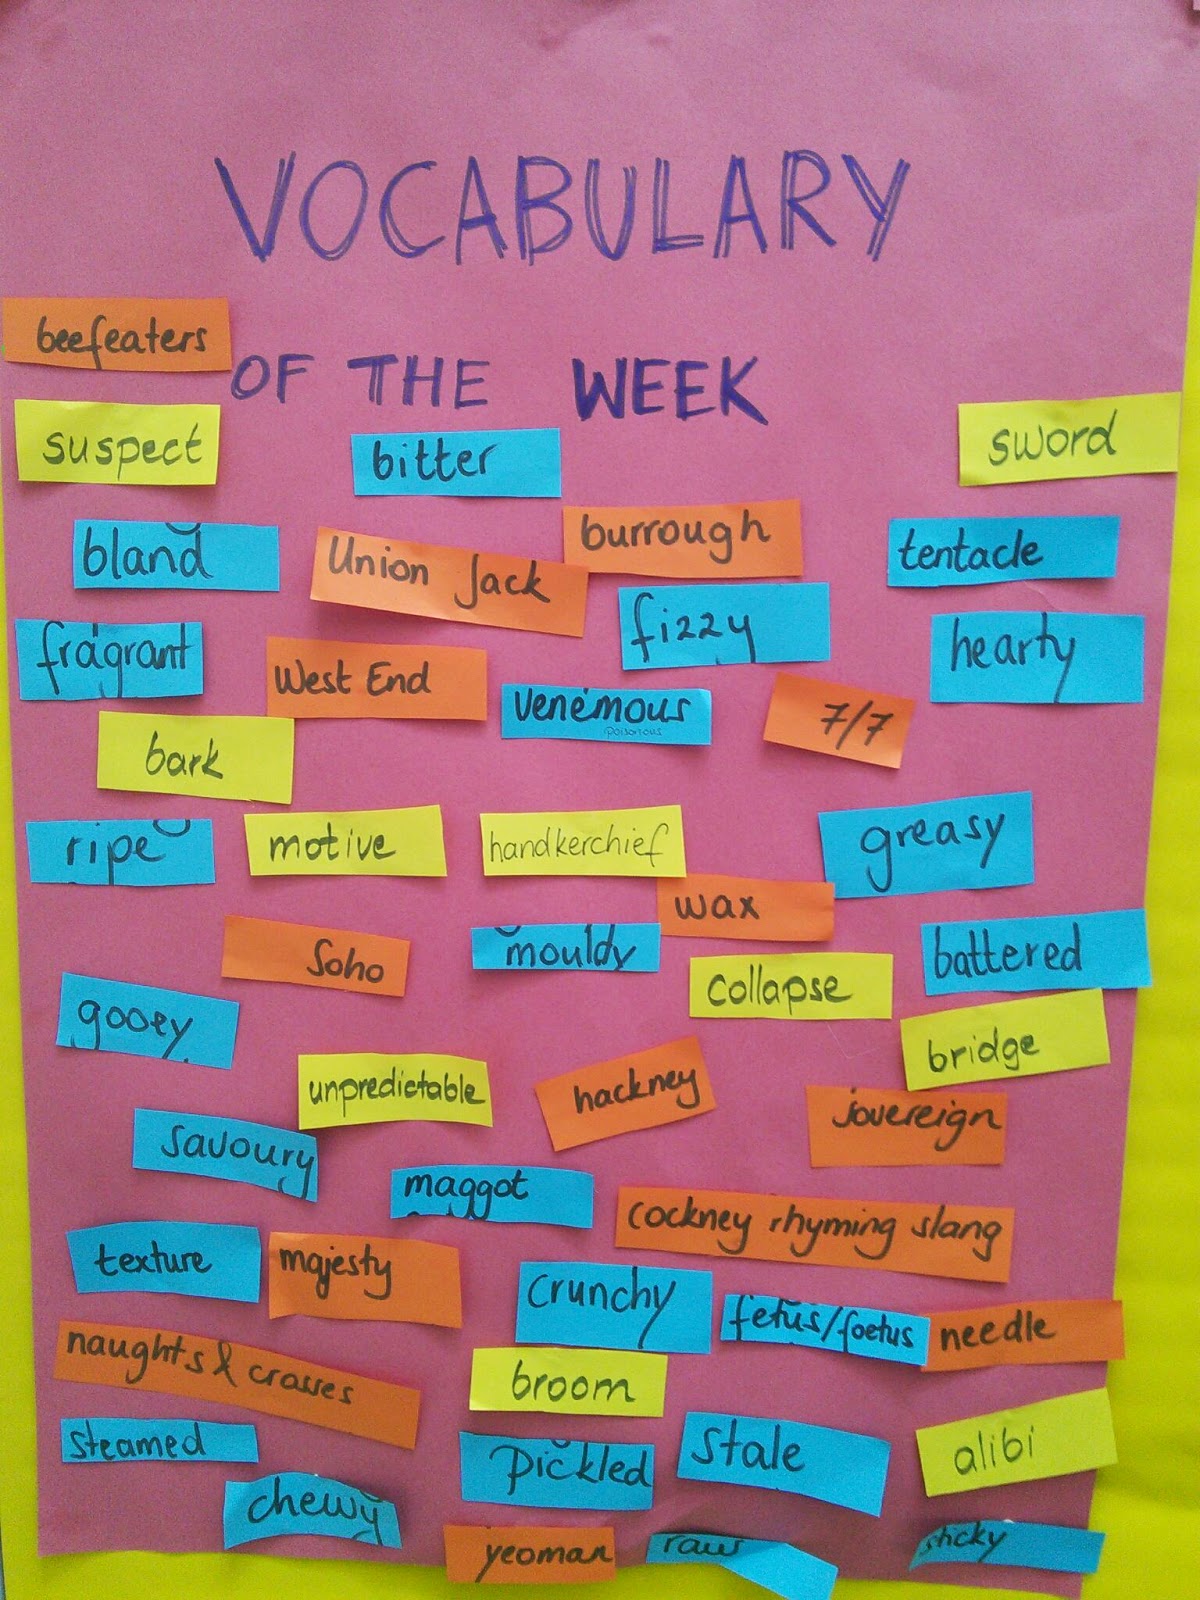 VOCABULARY
beefeaters
OF THE WEEK
suspect
bitter
sword
bland
Union Jack
burrough
tentacle
fragrant
West End
fizzy
hearty
venemous
poisonous
7/7
bark
ripe
motive
handkerchief
greasy
wax
Soho
mouldy
collapse
battered
gooey
unpredictable
hackney
bridge
sovereign
savoury
maggot
cockney rhyming slang
texture
majesty
crunchy
fetus/foetus
needle
naughts & crosses
broom
steamed
pickled
stale
alibi
chewy
yeoman
raw
sticky